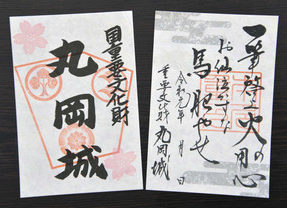 国重要文化財
丸岡城
一筆啓上火の用心
お仙泣かすな
馬肥やせ
令和元年 月 日
重要文化財 丸岡城